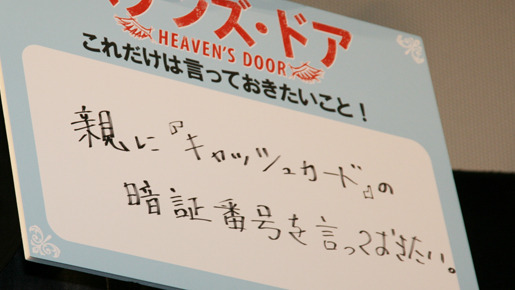 ンズ・ドア
HEAVEN'S DOOR
これだけは言っておきたいこと！
親に『キャッシュカード』の
暗証番号を言っておきたい。